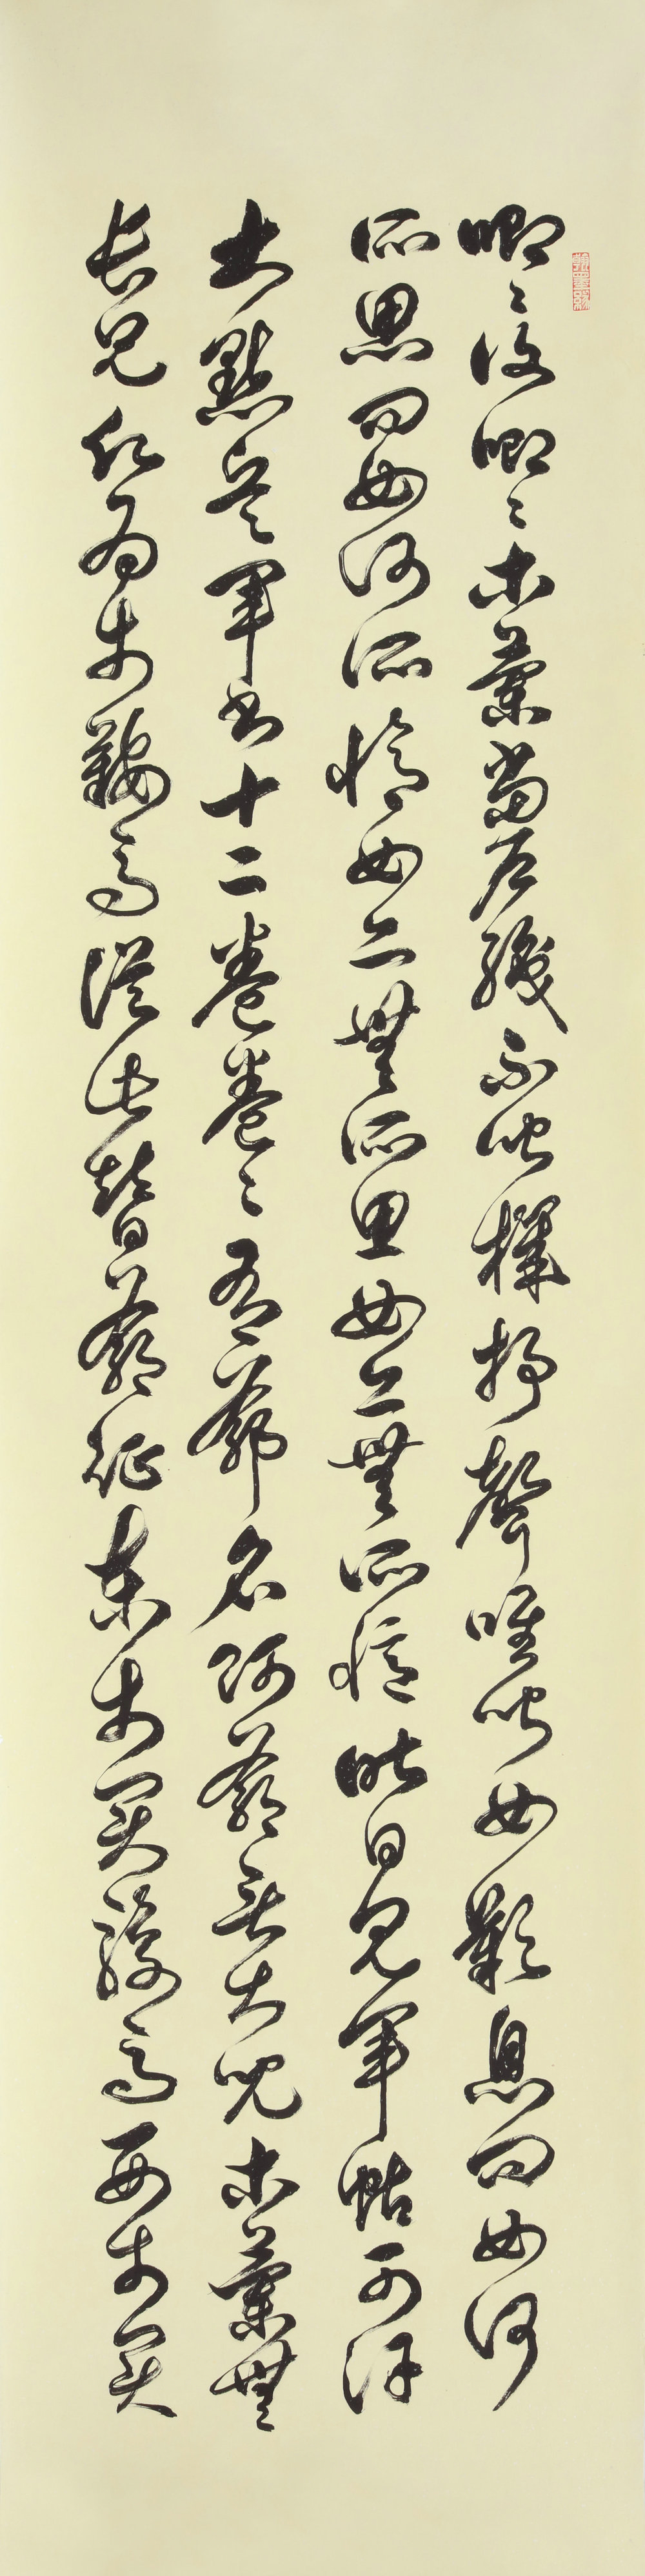 唧々復唧々木蘭當户織不聞機杼聲唯聞女歎息問女何
所思問女何所憶女亦無所思女亦無所憶昨日見軍帖可汗
大點兵軍書十二卷卷々有爺名阿爺無大兒木蘭無
長兄願為市鞍馬從此替爺征東市買駿馬西市買